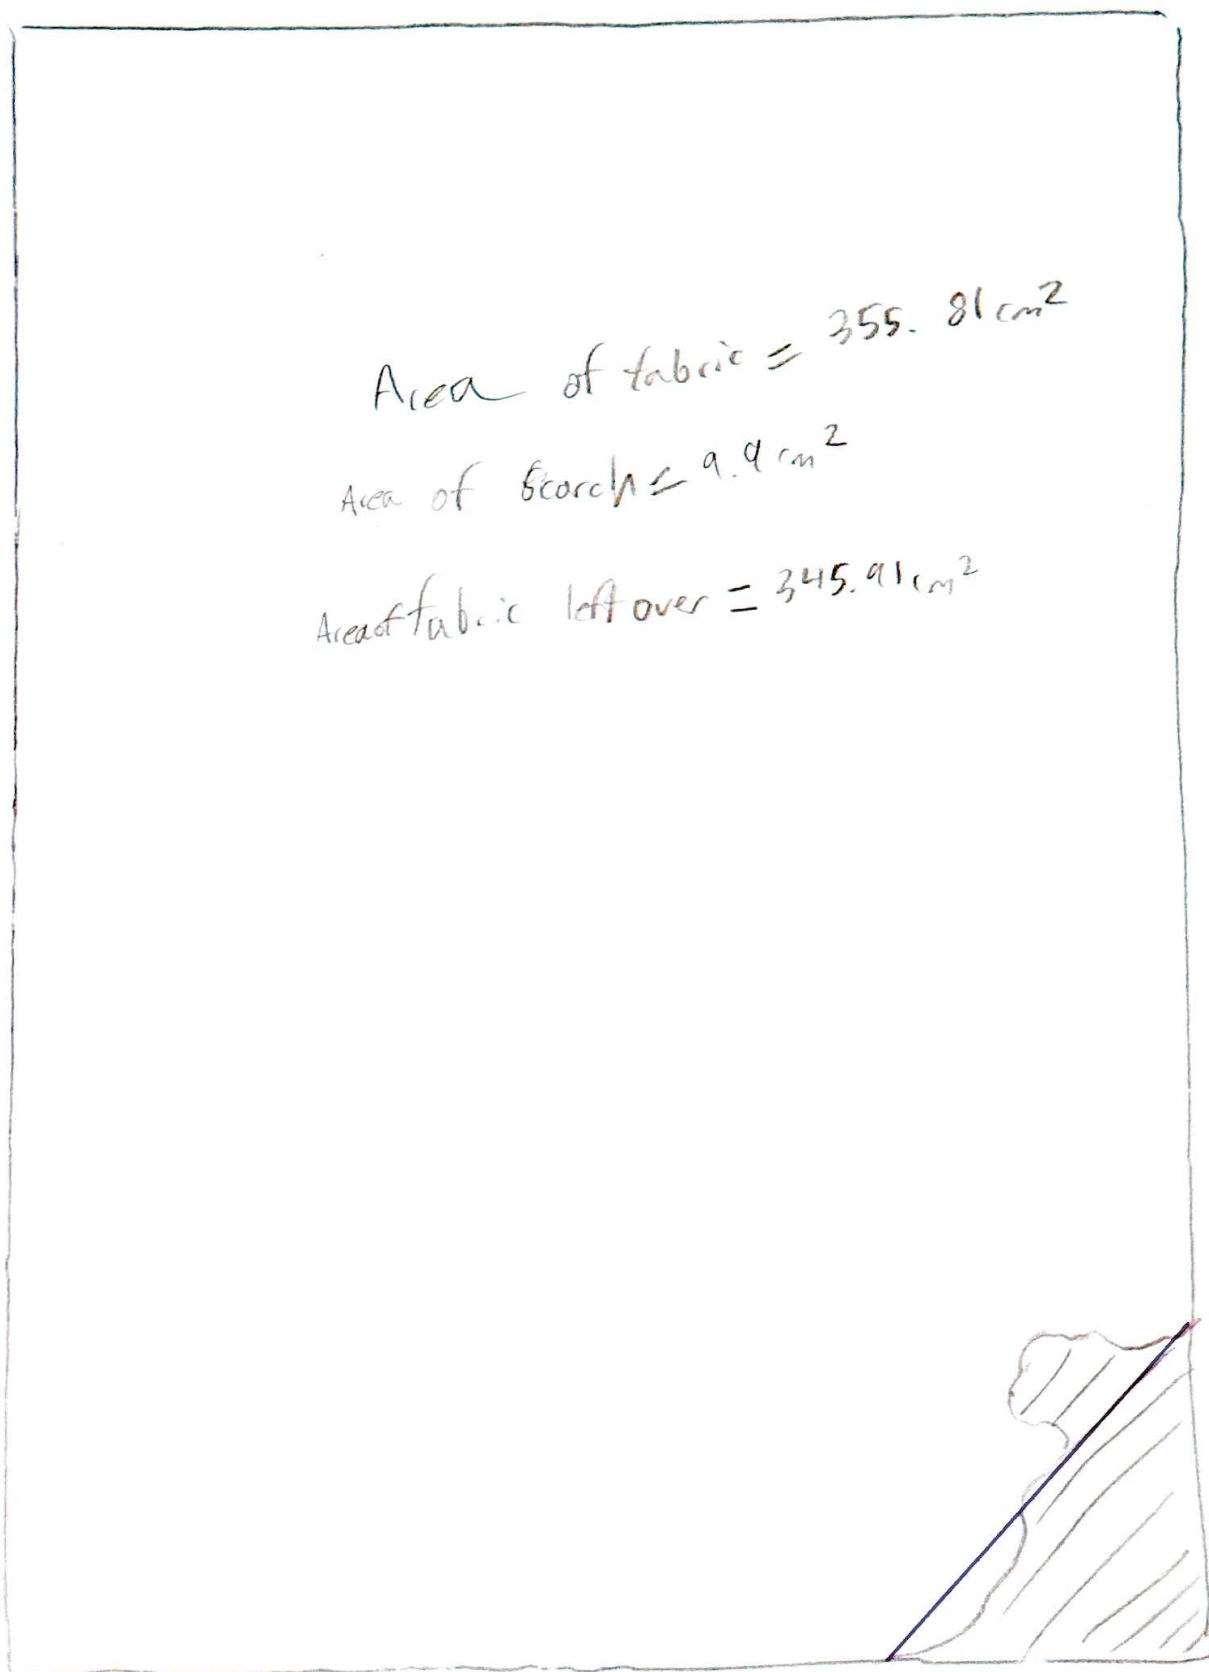 Area of fabric = 355.81 cm²
Area of Scorch = 9.9 cm²
Area of fabric left over = 345.91 cm²